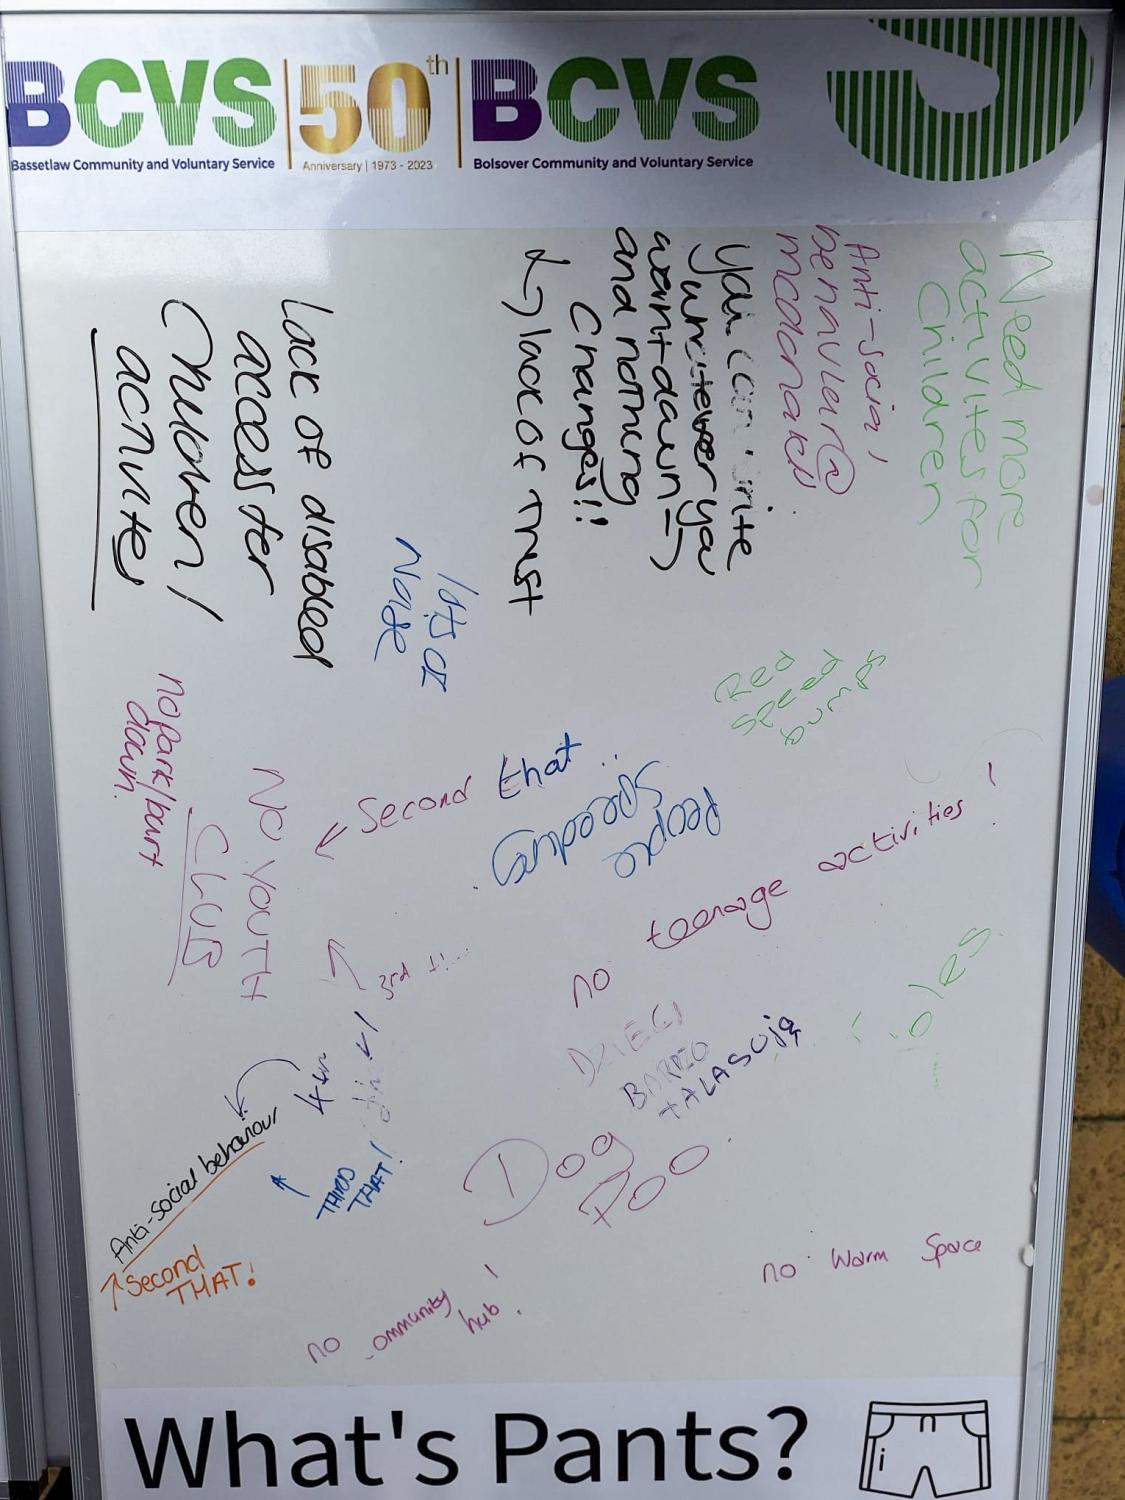 BCVS
Bassetlaw Community and Voluntary Service
50th
Anniversary | 1973 - 2023
BCVS
Bolsover Community and Voluntary Service
Need more
activites for
Children
Anti-social
behaviuer@
mcdonalds
You can write
whatever you
want down →
and nothing
Changes!!
↳ lack of trust
lots of
Lack of disabled
access for
Children /
activites
Red
Speed
Bumps
Second that
People
Speeding
no park/burt
down.
NO YOUTH
CLUB
no teenage activities!
3rd it
4th
DZIECI
BARDZO
HALASUJĄ
Dog
Poo
Anti-social behaviour
THIRD
THAT!
Second
THAT!
no community
hub!
no Warm Space
What's Pants?